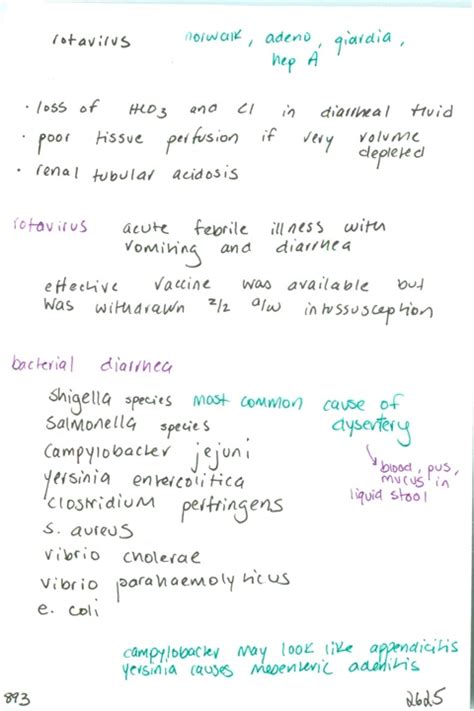 rotavirus norwalk, adeno, giardia,
hep A
· loss of HCO3 and Cl in diarrheal fluid
· poor tissue perfusion if very volume
depleted
· renal tubular acidosis
rotavirus acute febrile illness with
vomiting and diarrhea
effective vaccine was available but
was withdrawn 2/2 a/w intussusception
bacterial diarrhea
shigella species most common cause of
salmonella species dysentery
campylobacter jejuni
blood, pus,
mucus in
liquid stool
yersinia entercolitica
clostridium perfringens
s. aureus
vibrio cholerae
vibrio parahaemolyticus
e. coli
campylobacter may look like appendicitis
yersinia causes mesenteric adenitis
893 2625